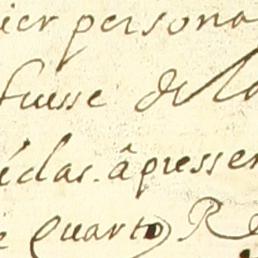 ier persona
fuisse de la
éclas. âpresser
e quarto R